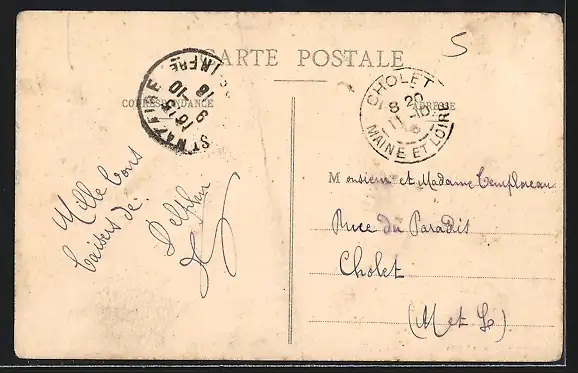 CARTE POSTALE
5
CORRESPONDANCE
ADRESSE
ST NAZAIRE
16 15
9 -10
INFRE
CHOLET
8 20
11 -10
MAINE ET LOIRE
Mille bons
baisers de.
Monsieur et Madame
Rue du Paradis
Cholet
(M et L)